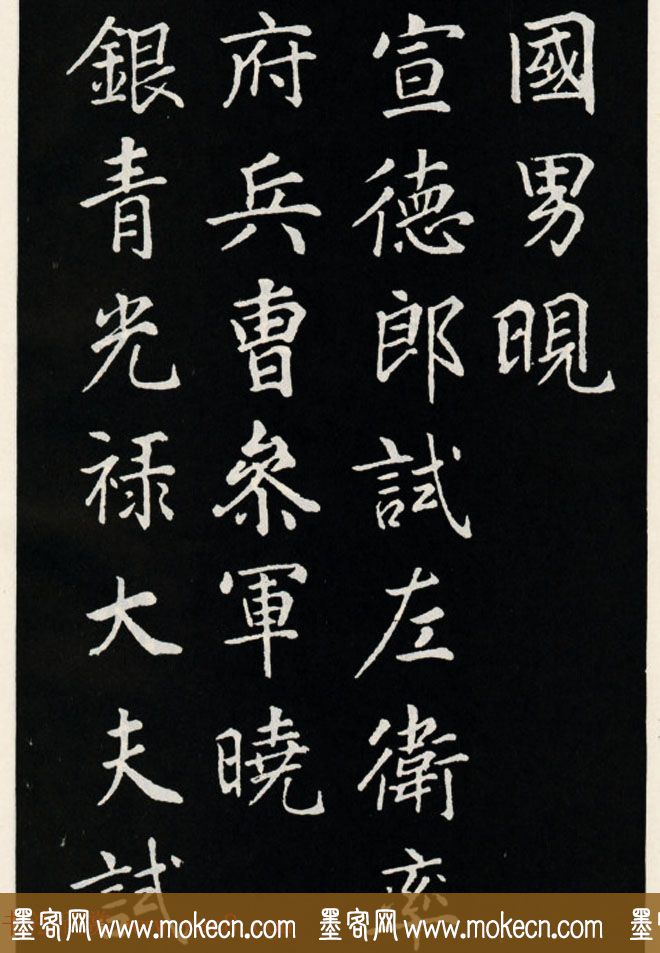 國男晛
宣德郎試左衛率
府兵曹參軍曉
銀青光祿大夫試
墨客网 www.mokecn.com 墨客网 www.mokecn.com